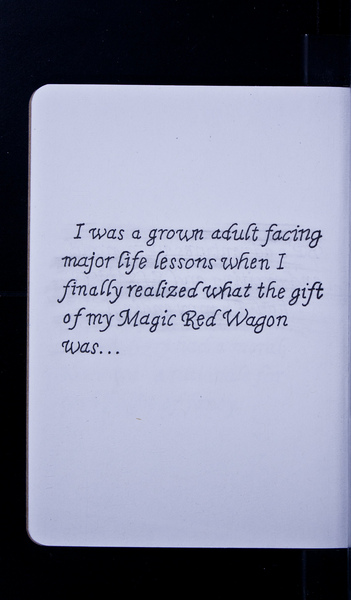 I was a grown adult facing
major life lessons when I
finally realized what the gift
of my Magic Red Wagon
was...